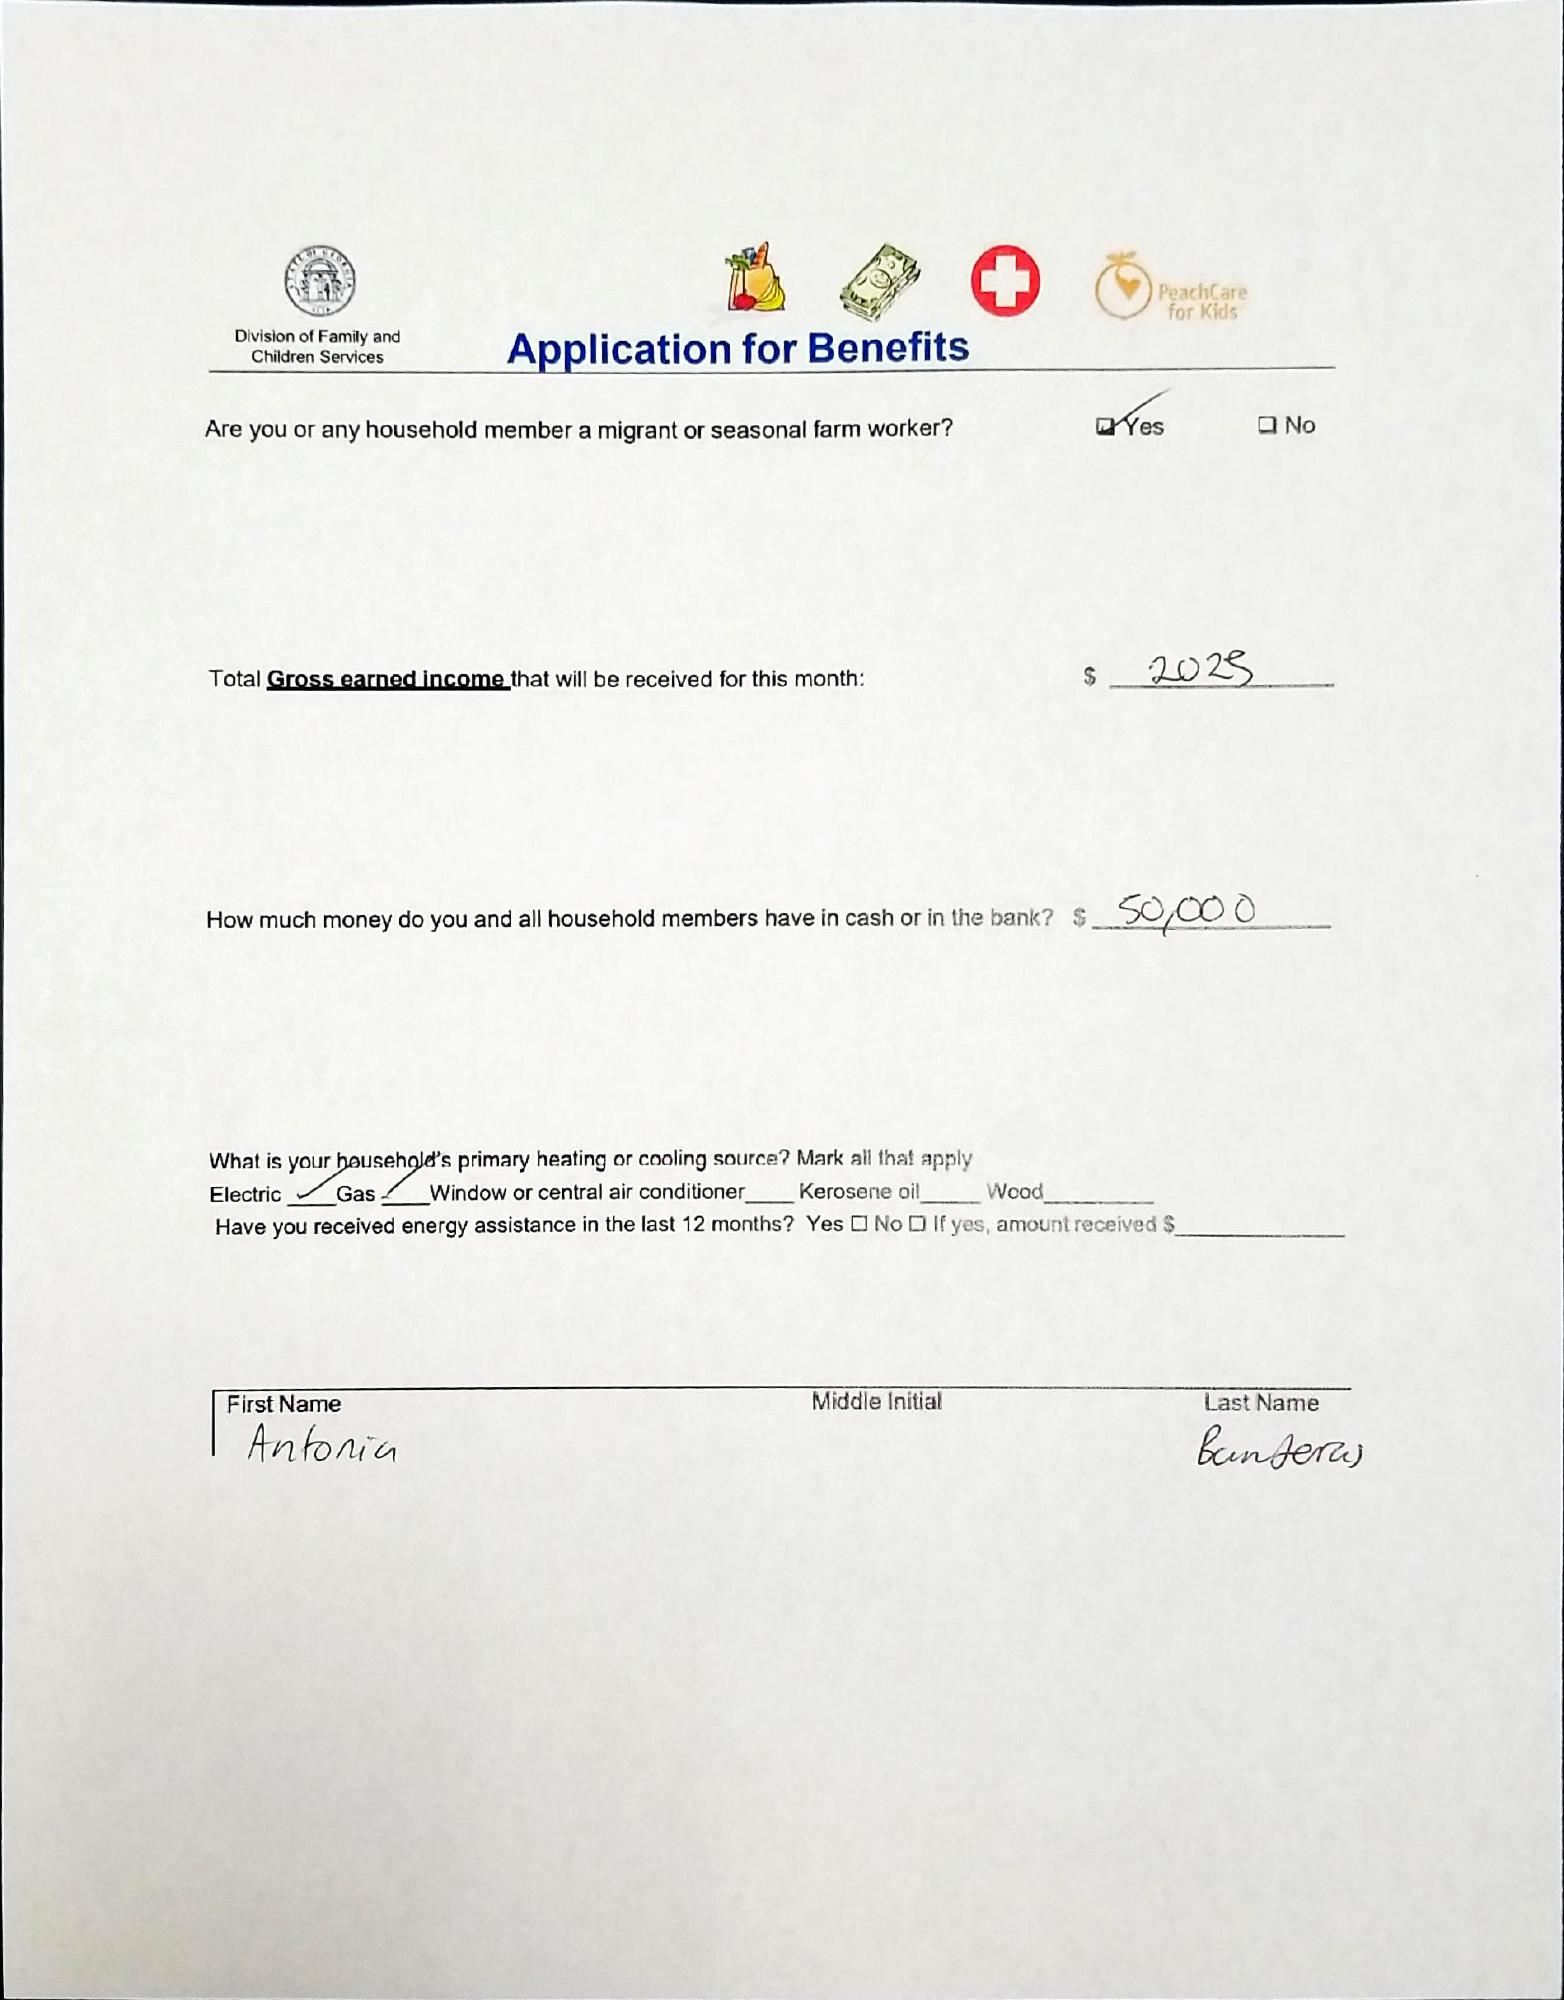 STATE OF GEORGIA
Division of Family and
Children Services
PeachCare
for Kids
Application for Benefits
Are you or any household member a migrant or seasonal farm worker? ☑ Yes ☐ No
Total Gross earned income that will be received for this month: $ 2025
How much money do you and all household members have in cash or in the bank? $ 50,000
What is your household's primary heating or cooling source? Mark all that apply
Electric ✓ Gas ✓ Window or central air conditioner____ Kerosene oil____ Wood____
Have you received energy assistance in the last 12 months? Yes ☐ No ☐ If yes, amount received $____
First Name Middle Initial Last Name
Antonia Banderas